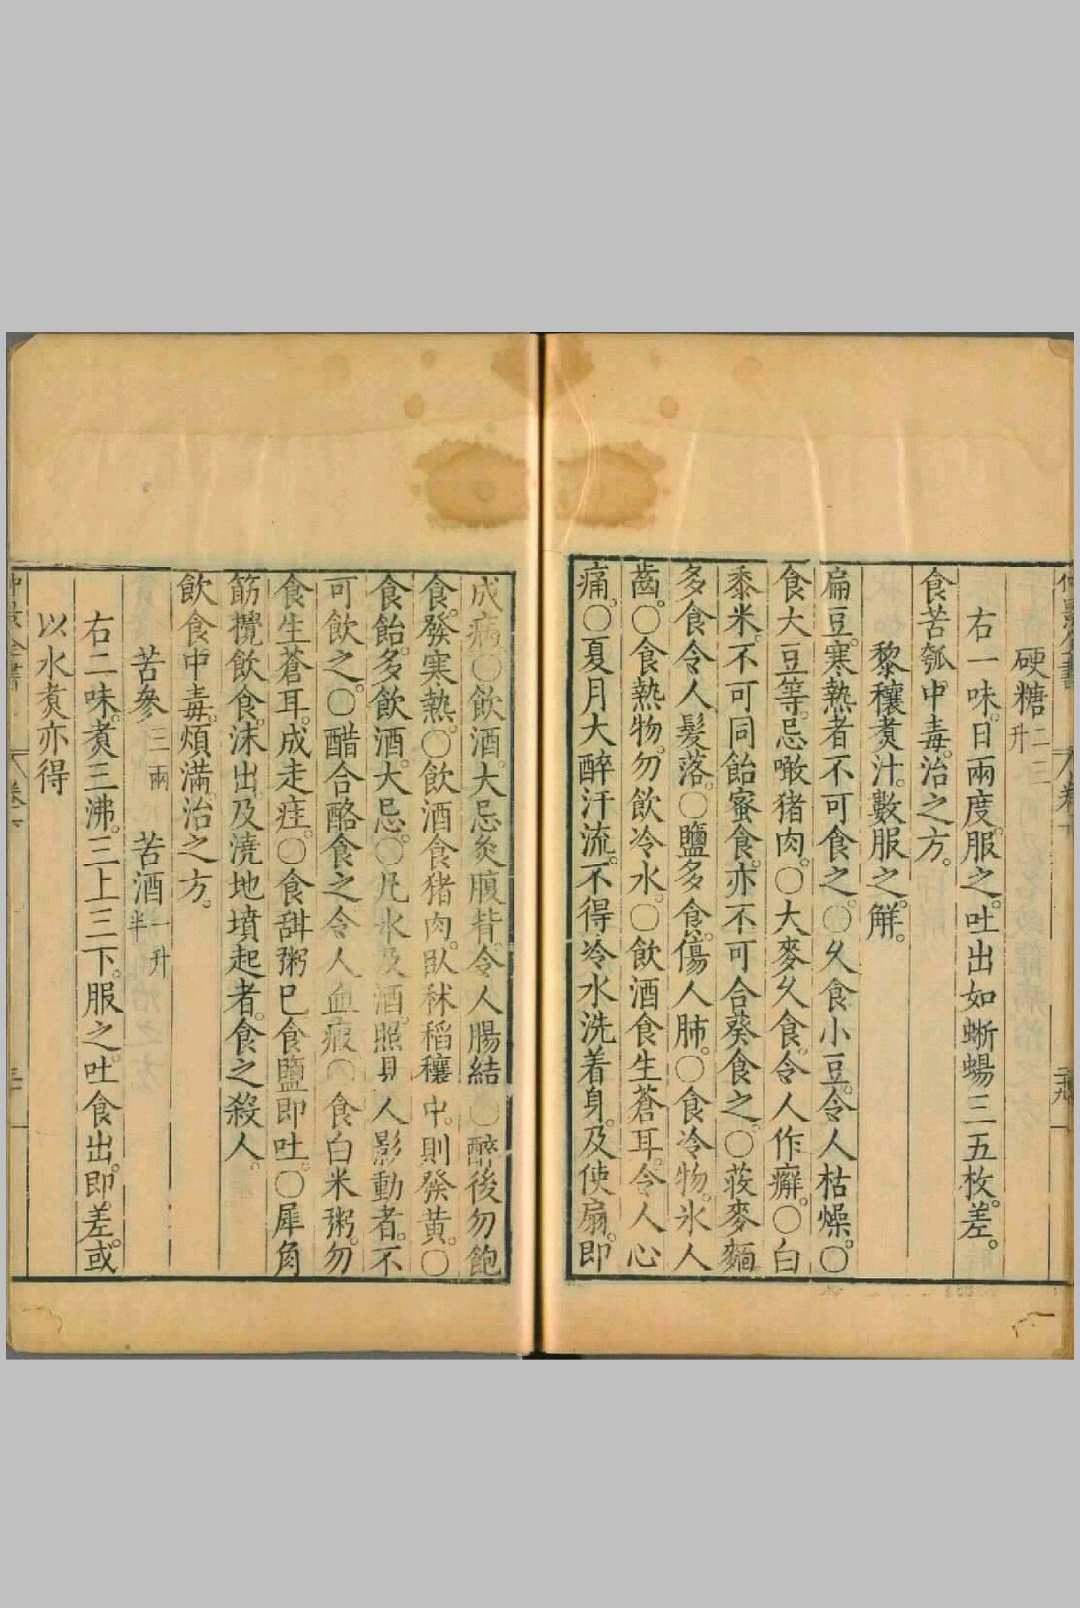 硬糖二三升
右一味。日兩度。服之。吐出如蜥蜴三五枚。差。
食苦瓠。中毒。治之方。
黎穰煑汁。數服之。解。
扁豆。寒熱者不可食之。〇乆食小豆。令人枯燥。〇
食大豆等。忌噉猪肉。〇大麥乆食。令人作癬。〇白
黍米。不可同飴蜜食。亦不可合葵食之。〇莜麥麵
多食令人髮落。〇鹽多食。傷人肺。〇食冷物。氷人
齒。〇食熱物。勿飲冷水。〇飲酒食生蒼耳。令人心
痛。〇夏月大醉汗流。不得冷水洗着身。及使扇。即
成病。〇飲酒。大忌灸腹背。令人腸結。〇醉後勿飽
食。發寒熱。〇飲酒食猪肉。臥秫稻穰中。則發黄。〇
食飴。多飲酒。大忌。〇凡水及酒。照見人影動者。不
可飲之。〇醋合酪食之令人血瘕。〇食白米粥。勿
食生蒼耳。成走疰。〇食甜粥巳食鹽即吐。〇犀角
筯攪飲食。沫出。及澆地墳起者。食之殺人。
飲食中毒。煩滿。治之方。
苦參三兩 苦酒一升半
右二味。煑三沸。三上三下。服之。吐食出。即差。或
以水煑亦得